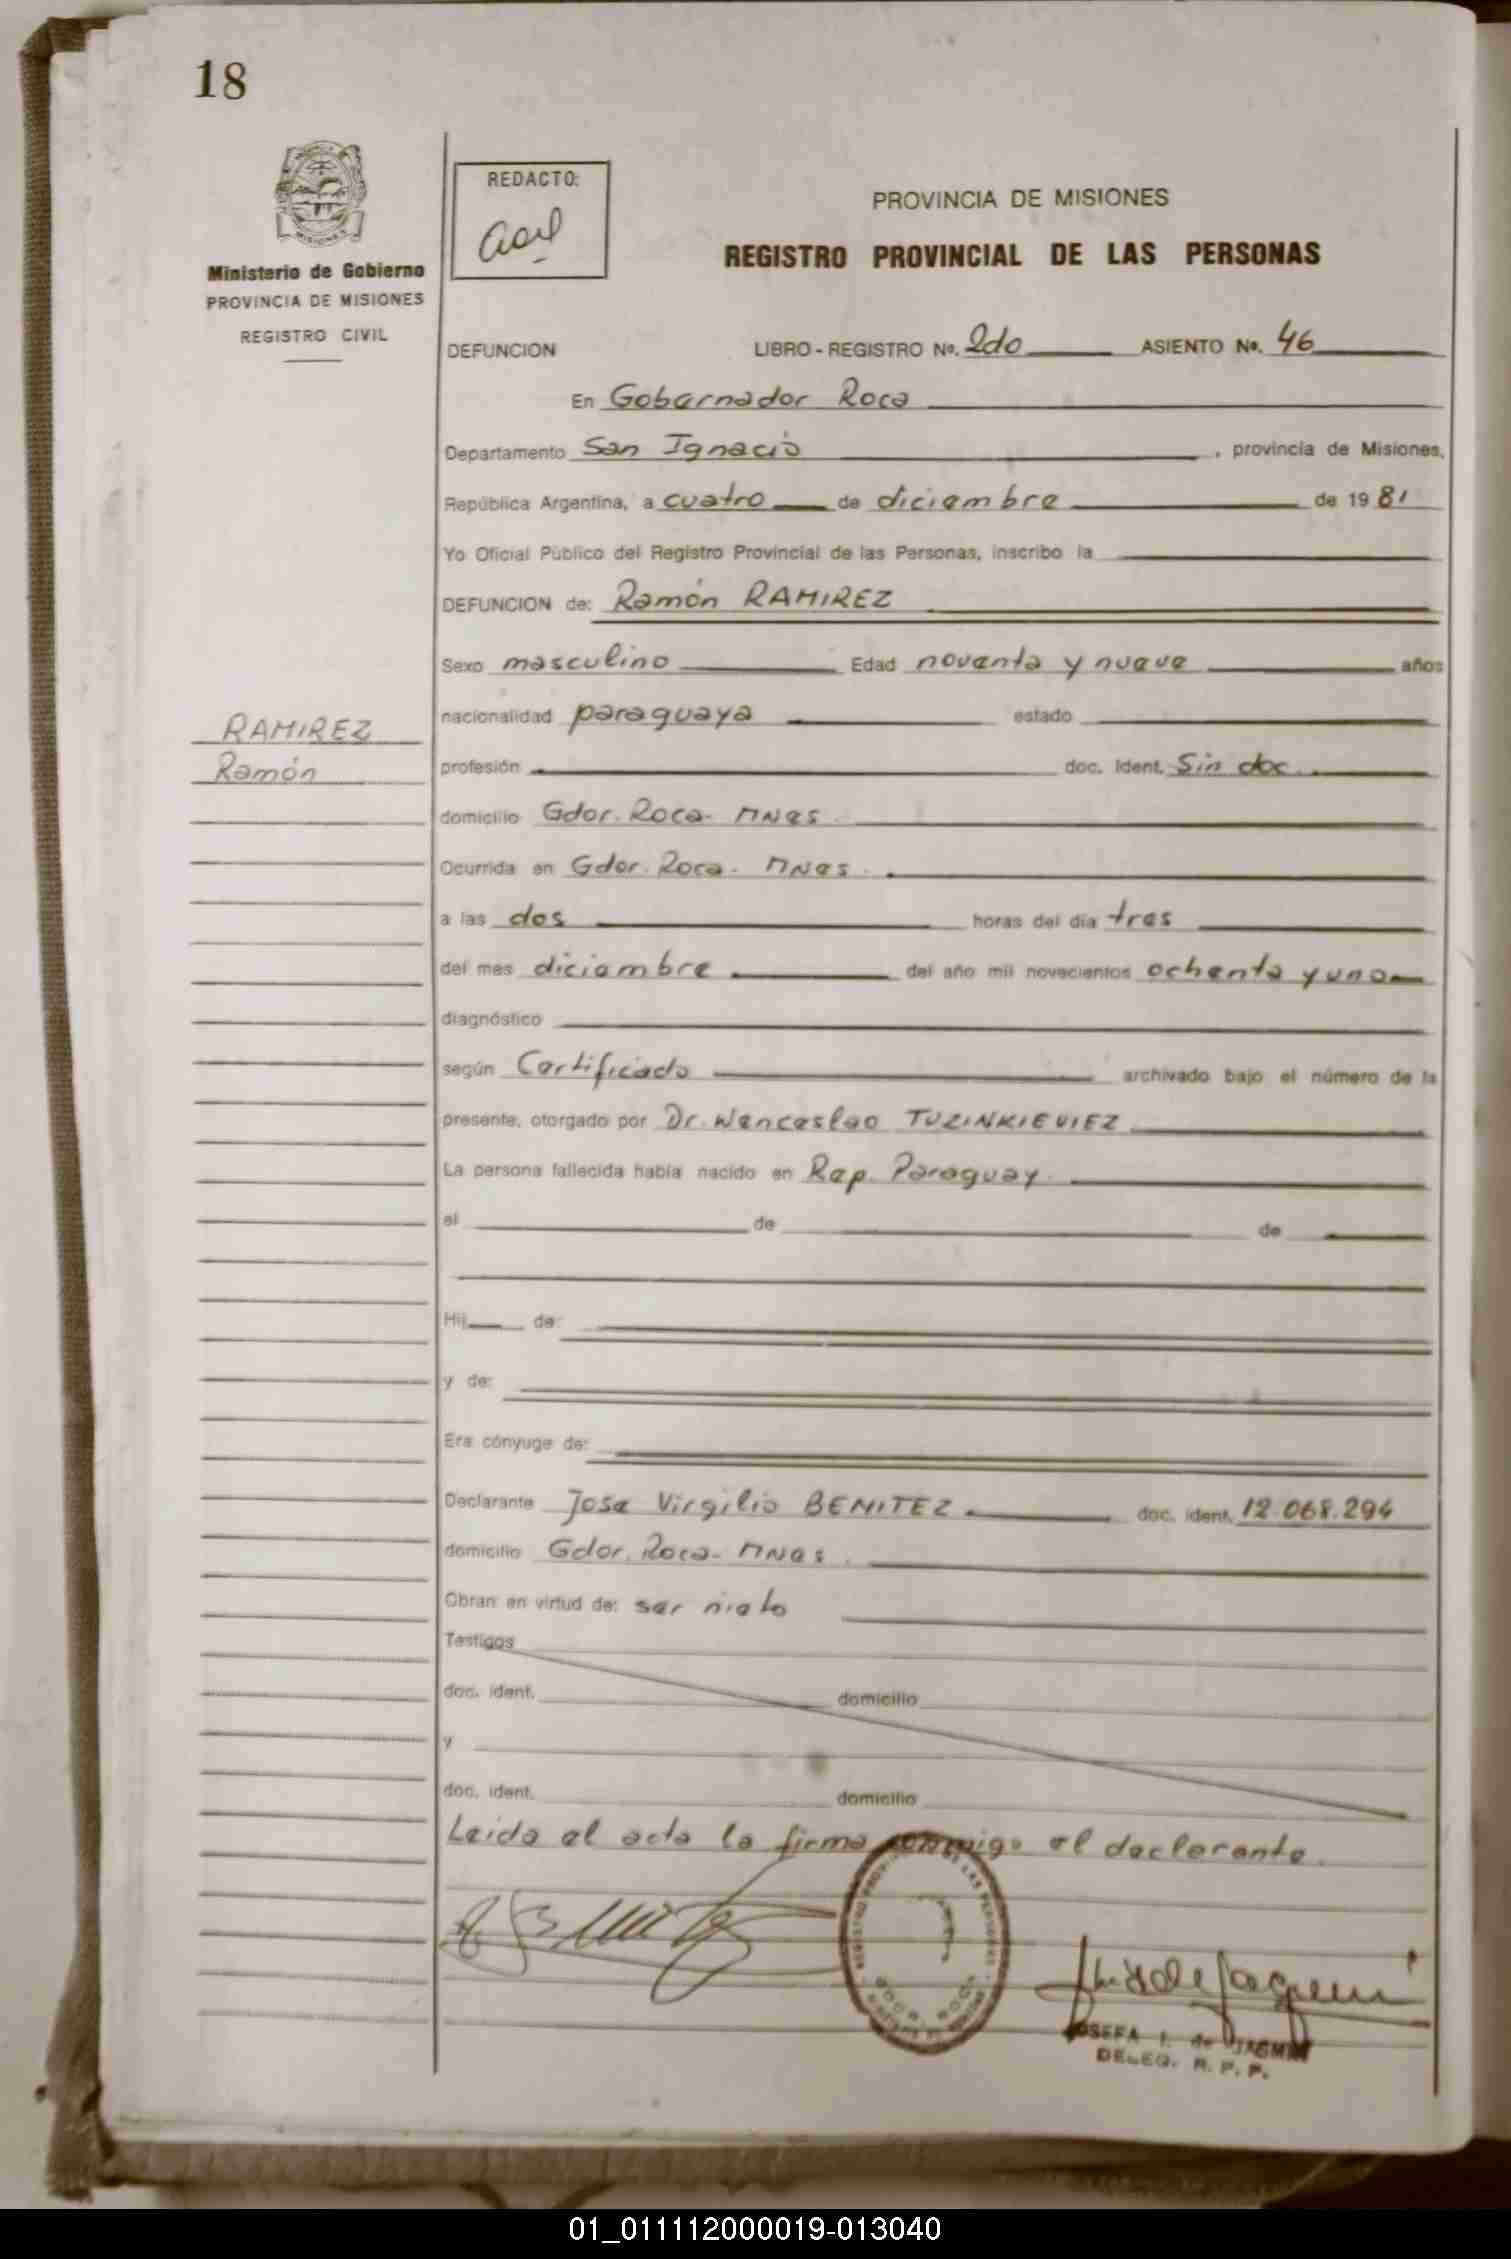 18
REDACTO:
Ministerio de Gobierno
PROVINCIA DE MISIONES
REGISTRO CIVIL
PROVINCIA DE MISIONES
REGISTRO PROVINCIAL DE LAS PERSONAS
DEFUNCION LIBRO - REGISTRO No. 2do ASIENTO No. 46
En Gobernador Roca
Departamento San Ignacio , provincia de Misiones,
República Argentina, a cuatro de diciembre de 1981
Yo Oficial Público del Registro Provincial de las Personas, inscribo la
DEFUNCION de: Ramón RAMIREZ
Sexo masculino Edad noventa y nueve años
nacionalidad paraguaya estado
RAMIREZ
Ramón
profesión doc. Ident. Sin doc.
domicilio Gdor. Roca- Mnes.
Ocurrida en Gdor. Roca- Mnes.
a las dos horas del día tres
del mes diciembre del año mil novecientos ochenta y uno
diagnóstico
según Certificado archivado bajo el número de la
presente, otorgado por Dr. Wenceslao TUZINKIEVIEZ
La persona fallecida había nacido en Rep. Paraguay.
el de de
Hij de:
y de:
Era cónyuge de:
Declarante Jose Virgilio BENITEZ doc. ident. 12.068.294
domicilio Gdor. Roca- Mnes.
Obran en virtud de: ser nieto
Testigos
doc. ident. domicilio
y
doc. ident. domicilio
Leida el acta la firma conmigo el declarante.
DELEG. R. P. P.
01_011112000019-013040